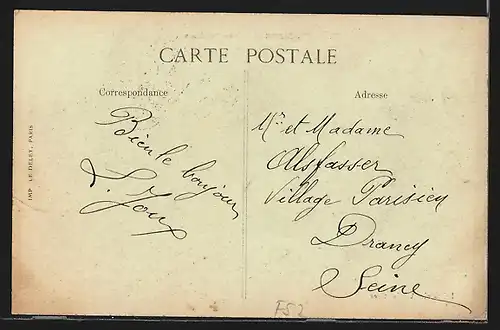 CARTE POSTALE
Correspondance
Adresse
Bien le bonjour
L. Joux
Mr et Madame
Alsfasser
Village Parisien
Drancy
Seine
IMP. LE DELEY, PARIS
FS2